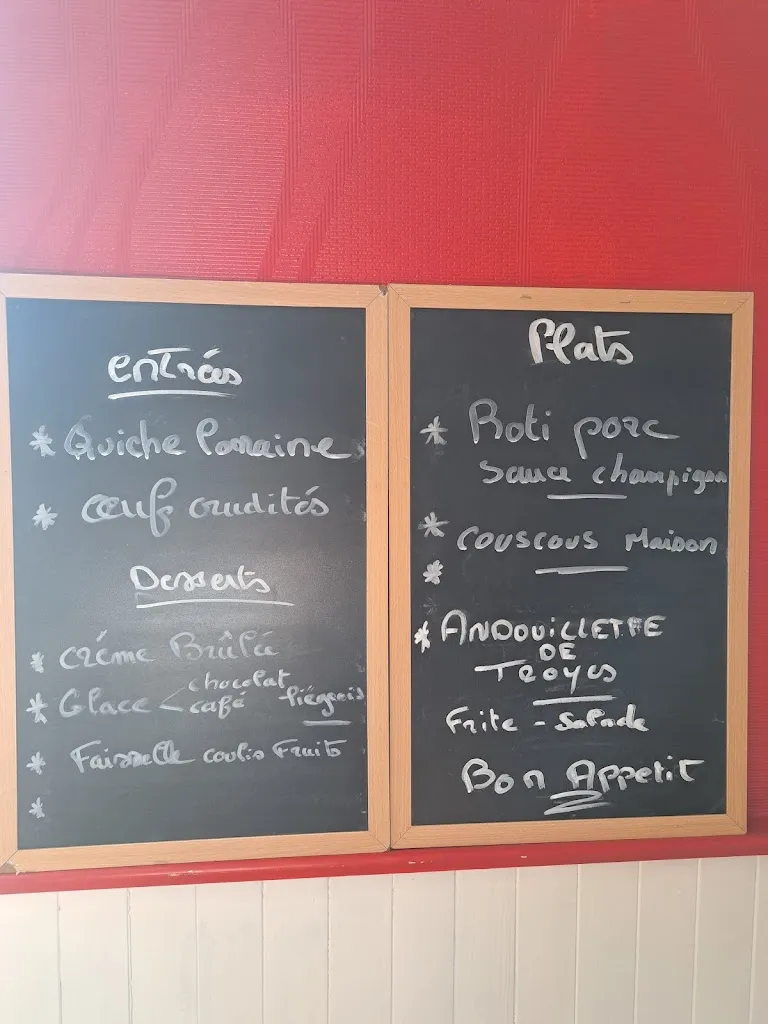 entrées
* Quiche Lorraine
* œuf crudités
Desserts
* créme Brûlée
* Glace < chocolat
café liégeois
* Faisselle coulis Fruits
*
Plats
* Roti porc
sauce champignon
* couscous Maison
*
* ANDOUILLETTE
DE
TROYES
Frite - Salade
Bon Appetit